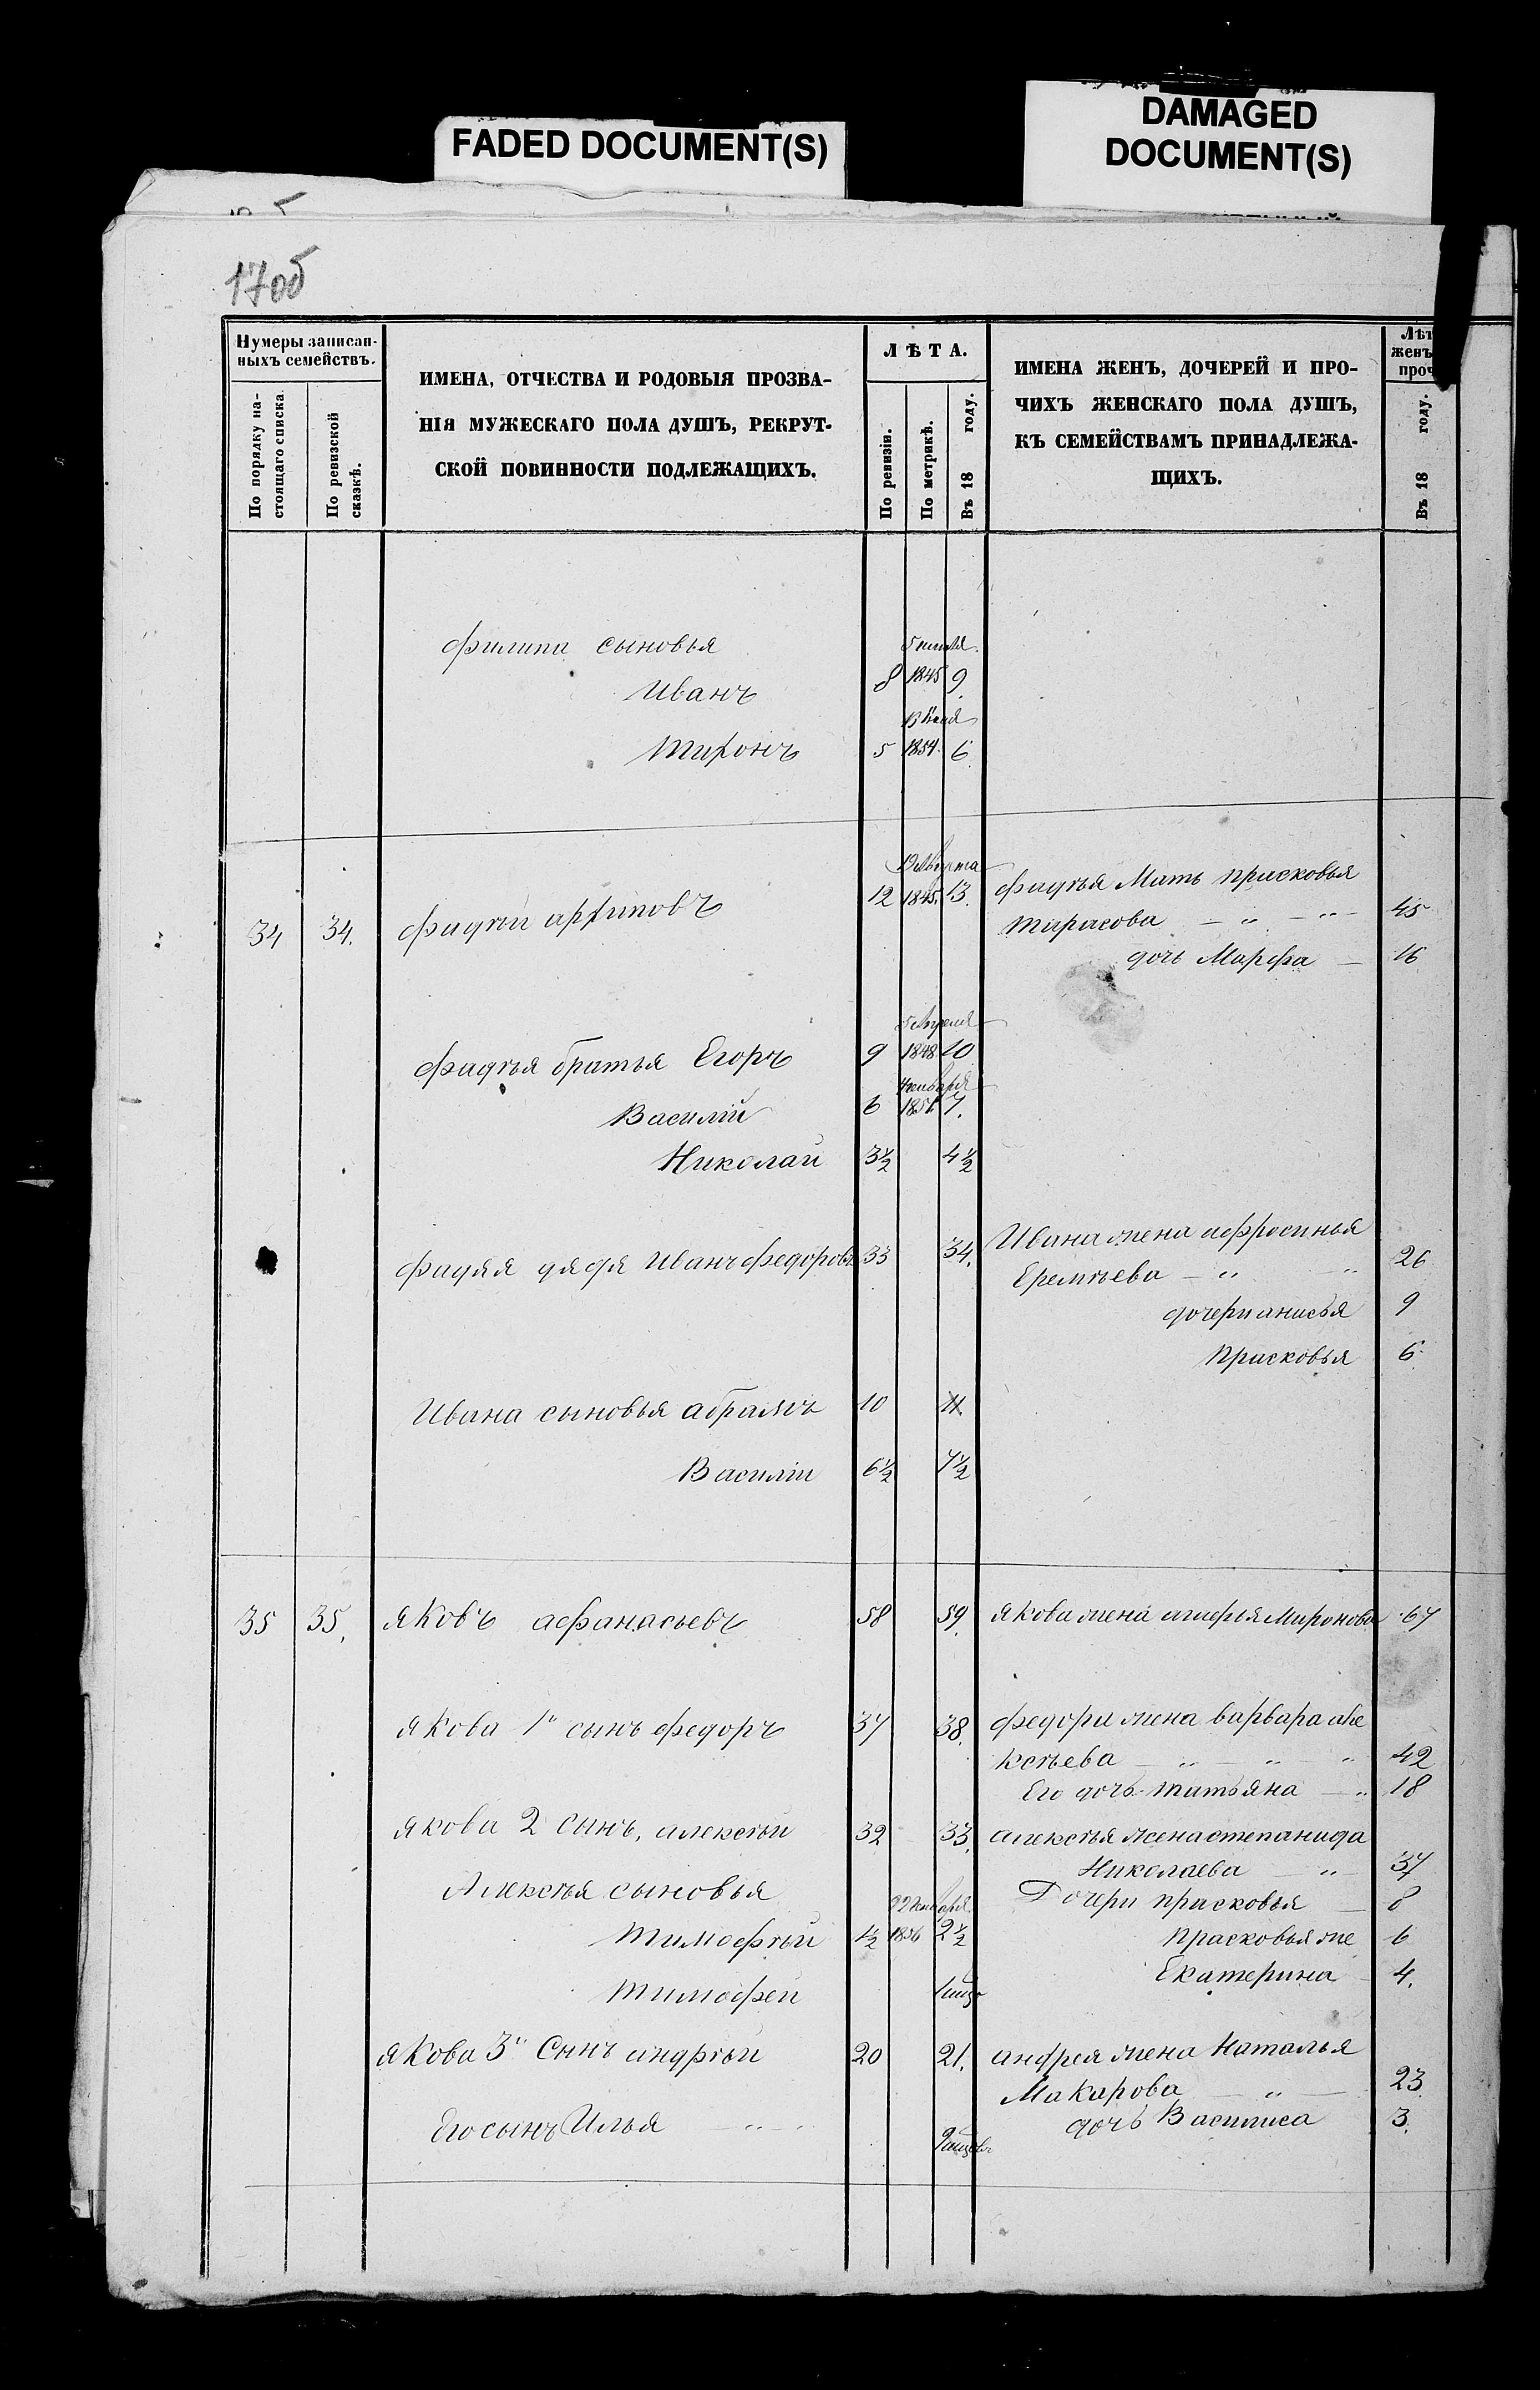 FADED DOCUMENT(S)
DAMAGED
DOCUMENT(S)
17об
Нумеры записан-
ныхъ семействъ.
По порядку на-
стоящаго списка.
По ревизской
сказкѣ.
ИМЕНА, ОТЧЕСТВА И РОДОВЫЯ ПРОЗВА-
НІЯ МУЖЕСКАГО ПОЛА ДУШЪ, РЕКРУТ-
СКОЙ ПОВИННОСТИ ПОДЛЕЖАЩИХЪ.
ЛѢТА.
По ревизіи.
По метрикѣ.
Въ 18 году.
ИМЕНА ЖЕНЪ, ДОЧЕРЕЙ И ПРО-
ЧИХЪ ЖЕНСКАГО ПОЛА ДУШЪ,
КЪ СЕМЕЙСТВАМЪ ПРИНАДЛЕЖА-
ЩИХЪ.
Лѣт
женъ
проч
Въ 18 году.
филипа сыновья
Иванъ 8 1845 9
Тихонъ 5 1854 6
19 Августа
34 34. Фадѣй архиповъ 12 1845. 13. фадѣя Мать прасковья
тарасова — " — " — 45
дочь Марфа — 16
5 Апреля
фадѣя братья Егоръ 9 1848 10
января
Василій 6 1851 7.
Николай 3½ 4½
фадяя дядя Иванъ федоровъ 33 34. Ивана жена афросинья
Еремѣева — " " 26
дочери анисья 9
прасковья 6
Ивана сыновья абрамъ 10 11
Василіи 6½ 7½
35 35. яковъ афанасьевъ 58 59. якова жена агафья Миронова 67
якова 1й сынъ федоръ 37 38. федора жена варвара але
ксѣева — " — " — " 42
Его дочь татьяна — " 18
якова 2 сынъ, алексѣй 32 33. алексѣя жена степанида
Николаева — " — 37
Алексѣя сыновья Дочери прасковья — 8
22 января
тимофѣй 1½ 1856 2½ прасковья же 6
тимофей Екатерина 4.
якова 3й Сынъ андрѣй 20 21. андрея жена Наталья
Макарова — " — 23
Его сынъ Илья дочь Василиса 3.